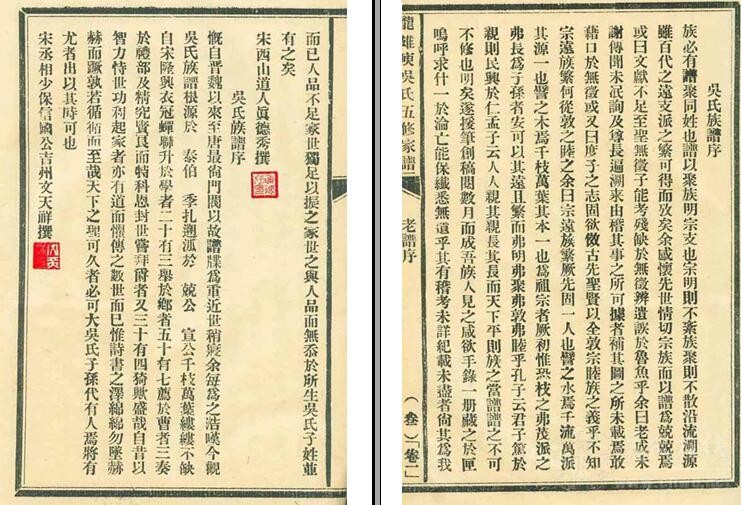 吳氏族譜序
族必有譜聚同姓也譜以聚族明宗支也宗明則不紊族聚則不散沿流溯源
雖百代之遠支派之繁可得而攷矣余感懷先世情切宗族而以譜爲兢兢焉
或曰文獻不足至聖無徵子能考殘缺於無徵辨遺誤於魯魚乎余曰老成未
謝傳聞未泯詢及尊長遍溯來由稽其事之所可據者補其圖之所未載焉敢
藉口於無徵或又曰度子之志固欲倣古先聖賢以全敦宗睦族之義乎不知
宗遠族繁何從敦之睦之余曰宗遠族繁厥先固一人也譬之水焉千流萬派
其源一也譬之木焉千枝萬葉其本一也爲祖宗者厥初惟恐枝之弗茂派之
弗長爲子孫者安可以其遠且繁而弗明弗聚弗敦弗睦乎孔子云君子篤於
親則民興於仁孟子云人人親其親長其長而天下平則族之當譜譜之不可
不修也明矣遂援筆創稿閱數月而成吾族人見之咸欲手錄一册藏之於匣
嗚呼求什一於淪亡能保纖悉無遺乎其有稽考未詳紀載未盡者尙其爲我
龍雄吳氏五修家譜 老譜序 (叁)「卷一」
而已人品不足家世獨足以振之家世之與人品而無忝於所生吳氏子姓並
有之矣
宋西山道人眞德秀撰
吳氏族譜序
慨自晉魏以來至唐最尙門閥以故譜牒爲重近世稍寢余每爲之浩嘆今觀
吳氏族譜根源於 泰伯 季扎遡派於 兢公 宣公千枝萬葉縷縷不缺
自宋陞興衣冠蟬聯升於學者二十有三舉於鄉者五十有七薦於曹者三奏
於禮部及精究賢良而特科恩封世嘗拜爵者又三十有四猗歟盛哉自昔以
智力恃世功利起家者亦有道而懷傳之數世而已惟詩書之澤綿綿勿墜赫
赫而蹶孰若循循而至哉天下之理可久者必可大吳氏子孫代有人焉將有
尤者出以其時可也
宋丞相少保信國公吉州文天祥撰